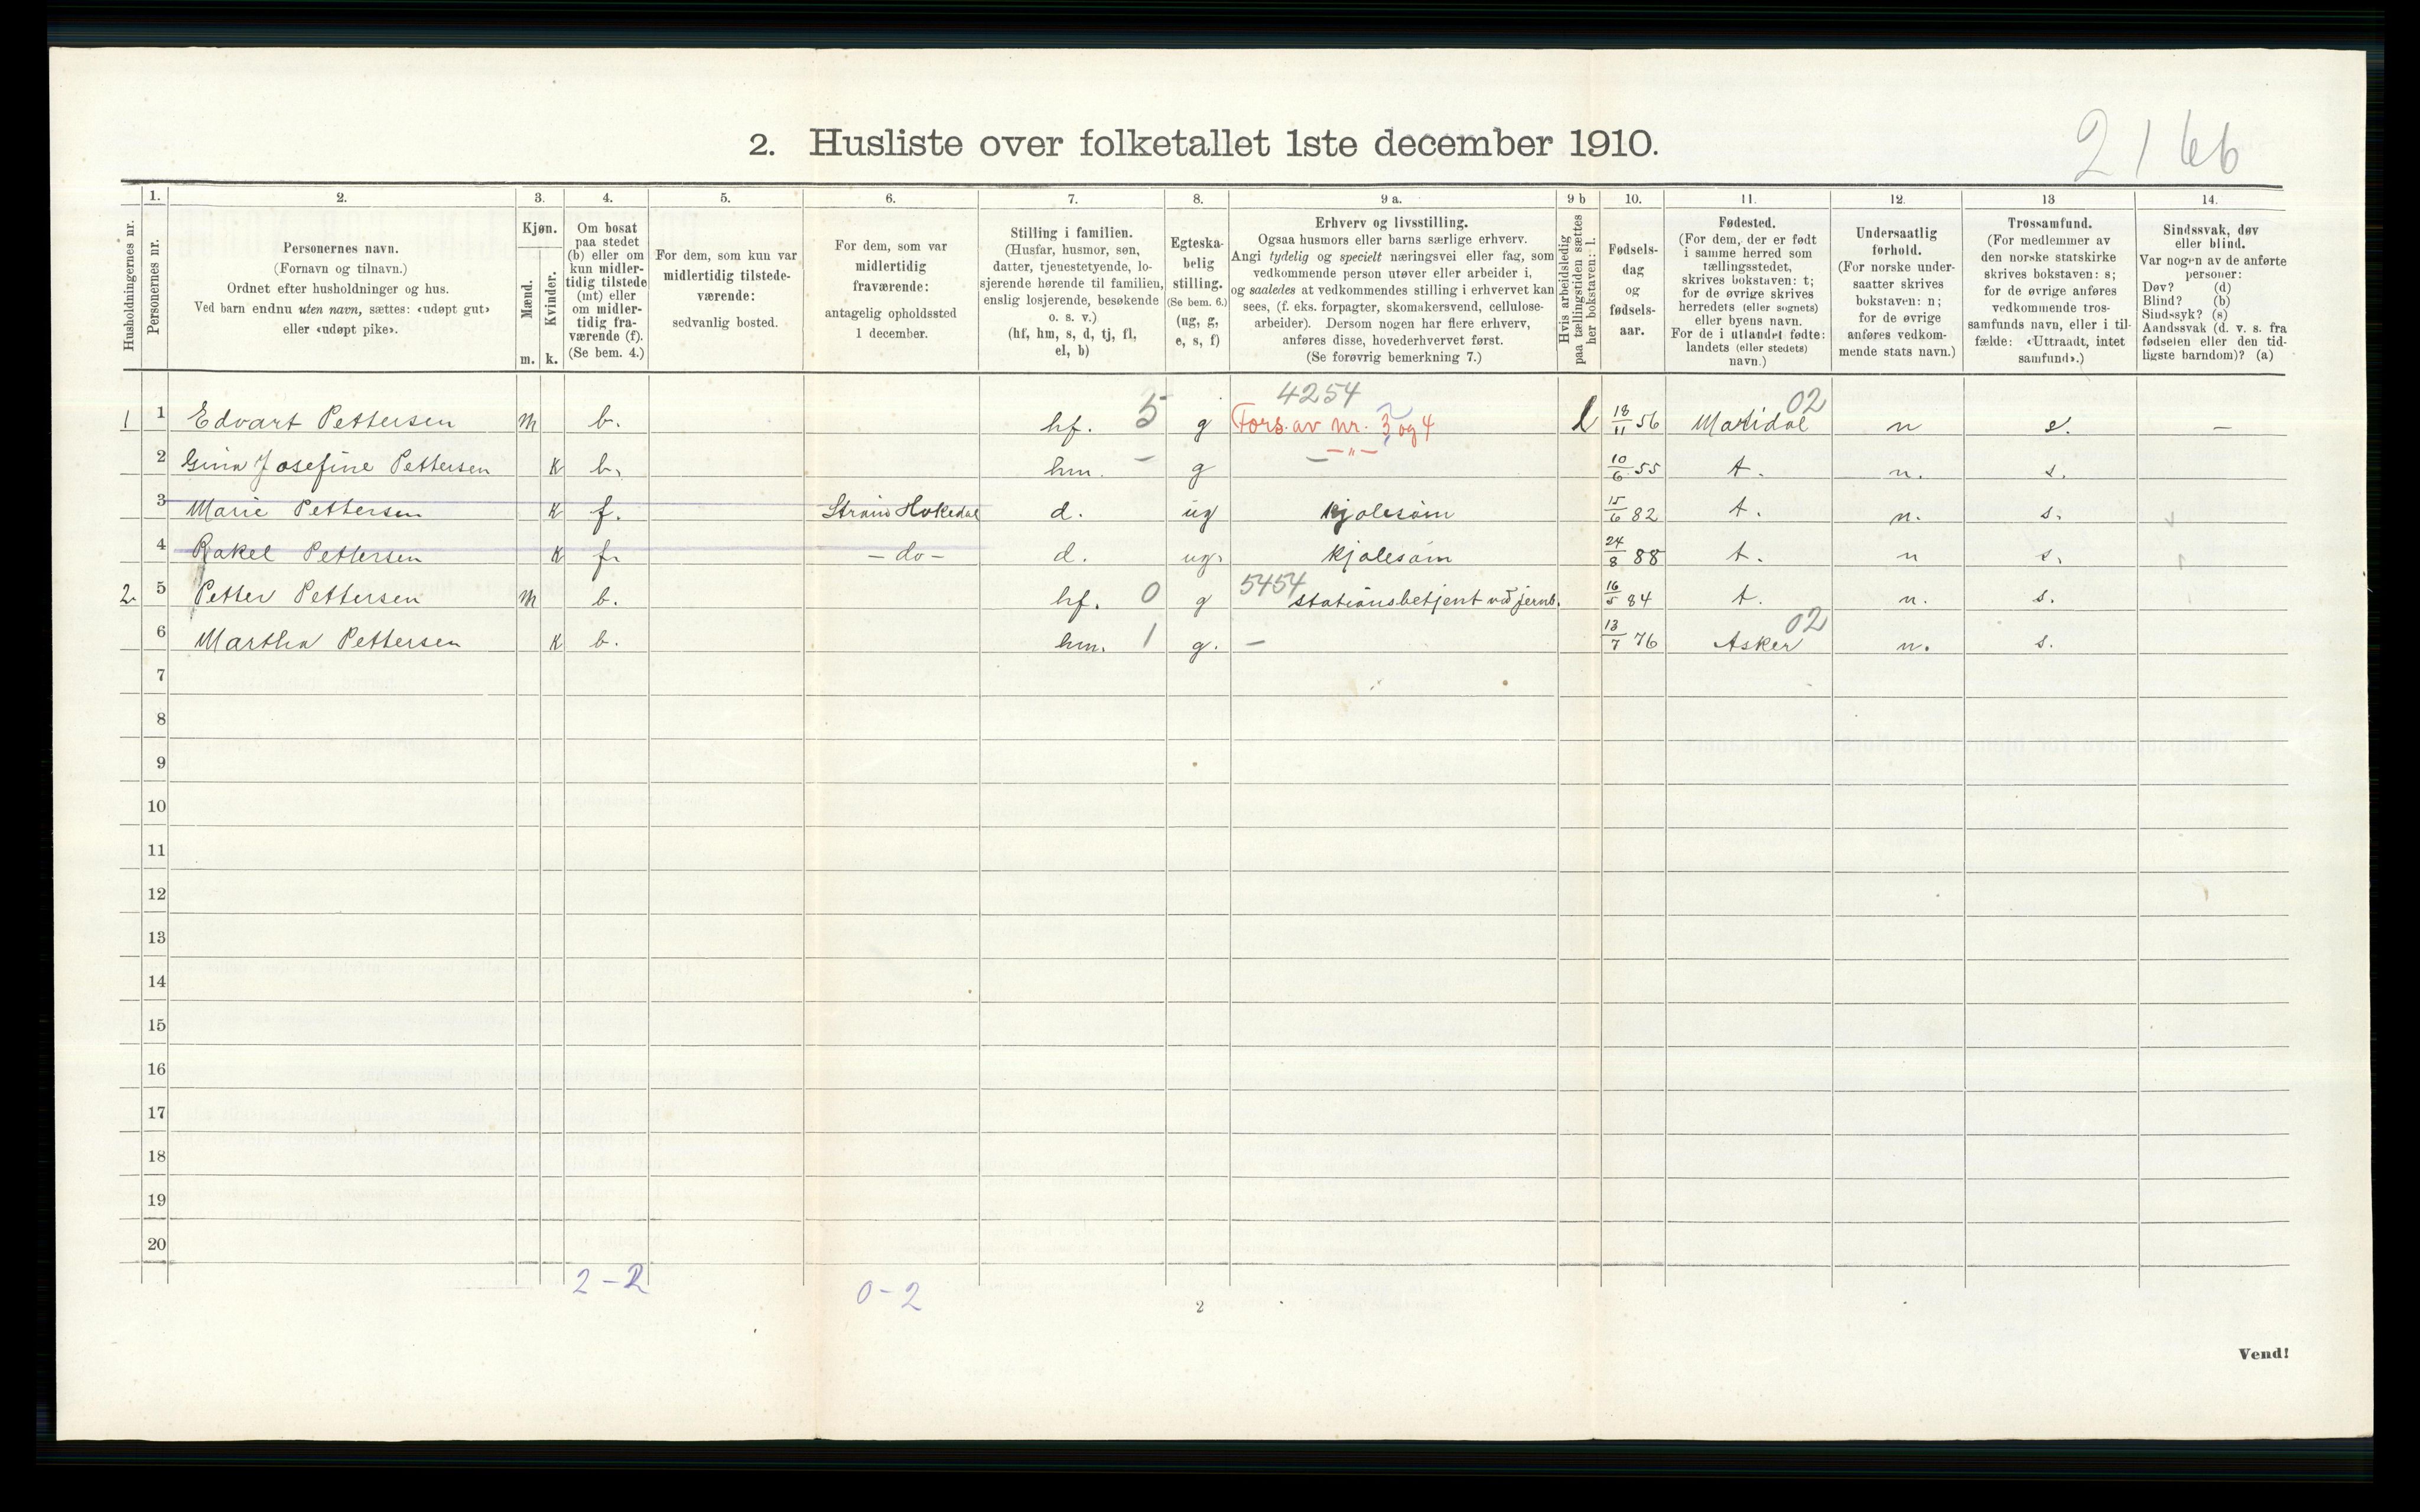 2166
2. Husliste over folketallet 1ste december 1910.
1. 2. 3. 4. 5. 6. 7. 8. 9 a. 9 b 10. 11. 12. 13 14.
Husholdningernes nr.
Personernes nr.
Personernes navn.
(Fornavn og tilnavn.)
Ordnet efter husholdninger og hus.
Ved barn endnu uten navn, sættes: «udøpt gut»
eller «udøpt pike».
Kjøn.
Mænd.
Kvinder.
m. k.
Om bosat
paa stedet
(b) eller om
kun midler-
tidig tilstede
(mt) eller
om midler-
tidig fra-
værende (f).
(Se bem. 4.)
For dem, som kun var
midlertidig tilstede-
værende:
sedvanlig bosted.
For dem, som var
midlertidig
fraværende:
antagelig opholdssted
1 december.
Stilling i familien.
(Husfar, husmor, søn,
datter, tjenestetyende, lo-
sjerende hørende til familien,
enslig losjerende, besøkende
o. s. v.)
(hf, hm, s, d, tj, fl,
el, b)
Egteska-
belig
stilling.
(Se bem. 6.)
(ug, g,
e, s, f)
Erhverv og livsstilling.
Ogsaa husmors eller barns særlige erhverv.
Angi tydelig og specielt næringsvei eller fag, som
vedkommende person utøver eller arbeider i,
og saaledes at vedkommendes stilling i erhvervet kan
sees, (f. eks. forpagter, skomakersvend, cellulose-
arbeider). Dersom nogen har flere erhverv,
anføres disse, hovederhvervet først.
(Se forøvrig bemerkning 7.)
Hvis arbeidsledig
paa tællingstiden sættes
her bokstaven: l.
Fødsels-
dag
og
fødsels-
aar.
Fødested.
(For dem, der er født
i samme herred som
tællingsstedet,
skrives bokstaven: t;
for de øvrige skrives
herredets (eller sognets)
eller byens navn.
For de i utlandet fødte:
landets (eller stedets)
navn.)
Undersaatlig
forhold.
(For norske under-
saatter skrives
bokstaven: n;
for de øvrige
anføres vedkom-
mende stats navn.)
Trossamfund.
(For medlemmer av
den norske statskirke
skrives bokstaven: s;
for de øvrige anføres
vedkommende tros-
samfunds navn, eller i til-
fælde: «Uttraadt, intet
samfund».)
Sindssvak, døv
eller blind.
Var nogen av de anførte
personer:
Døv? (d)
Blind? (b)
Sindssyk? (s)
Aandssvak (d. v. s. fra
fødselen eller den tid-
ligste barndom)? (a)
4254 02
1 1 Edvart Pettersen m b. hf. 5 g Fors. av nr. 3 og 4 l 18/11 56 Maridal n s. —
2 Gina Josefine Pettersen k b. hm. - g — -"- 10/6 55 t. n. s.
3 Marie Pettersen k f. d. ug kjolesøm 15/6 82 t. n. s.
4 Rakel Pettersen k f. - do - d. ug. kjolesøm 24/8 88 t. n s.
2. 5 Petter Pettersen m b. hf. 0 g 5454 stationsbetjent ved jernb. 16/5 84 t. n. s.
6 Martha Pettersen k b. hm. 1 g. — 13/7 76 Asker 02 n. s.
7
8
9
10
11
12
13
14
15
16
17
18
19
20
2-2 0-2
2
Vend!